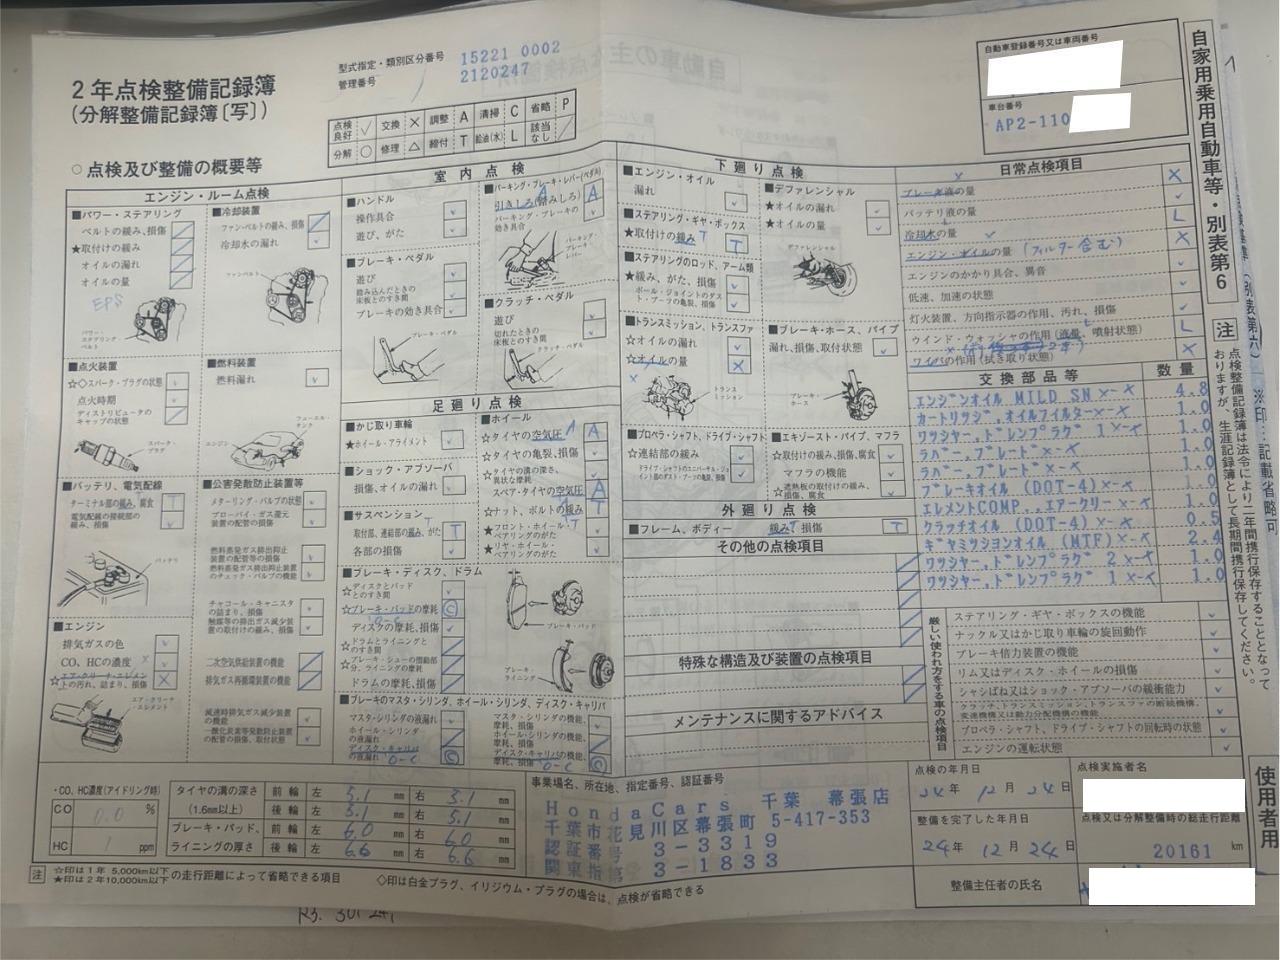 2年点検整備記録簿
(分解整備記録簿〔写〕)
型式指定・類別区分番号 15221 0002
管理番号 2120247
点検良好 ✓ 交換 × 調整 A 清掃 C 省略 P
分解 ○ 修理 △ 締付 T 給油(水) L 該当なし ╱
自動車登録番号又は車両番号
車台番号
AP2-110
自家用乗用自動車等・別表第6
○点検及び整備の概要等
エンジン・ルーム点検
■パワー・ステアリング
ベルトの緩み、損傷
★取付けの緩み
オイルの漏れ
オイルの量
EPS
パワー・ステアリング・ベルト
■冷却装置
ファン・ベルトの緩み、損傷
冷却水の漏れ
ファンベルト
■点火装置
☆◇スパーク・プラグの状態
点火時期
ディストリビュータのキャップの状態
スパーク・プラグ
■燃料装置
燃料漏れ
フューエル・タンク
エンジン
■バッテリ、電気配線
ターミナル部の緩み、腐食 T
電気配線の接続部の緩み、損傷
バッテリ
■公害発散防止装置等
メターリング・バルブの状態
ブローバイ・ガス還元装置の配管の損傷
燃料蒸発ガス排出抑止装置の配管等の損傷
燃料蒸発ガス排出抑止装置のチェック・バルブの機能
チャコール・キャニスタの詰まり、損傷
触媒等の排出ガス減少装置の取付けの緩み、損傷
二次空気供給装置の機能
排気ガス再循環装置の機能
減速時排気ガス減少装置の機能
一酸化炭素等発散防止装置の配管の損傷、取付状態
■エンジン
排気ガスの色
CO、HCの濃度
☆エア・クリーナ・エレメントの汚れ、詰まり、損傷 ×
エア・クリーナ・エレメント
室内点検
■ハンドル
操作具合
遊び、がた
■ブレーキ・ペダル
遊び
踏み込んだときの床板とのすき間
ブレーキの効き具合
ブレーキ・ペダル
■パーキング・ブレーキ・レバー(ペダル)
引きしろ(踏みしろ) A
パーキング・ブレーキの効き具合
パーキング・ブレーキ・レバー
■クラッチ・ペダル
遊び
切れたときの床板とのすき間
クラッチ・ペダル
足廻り点検
■かじ取り車輪
★ホイール・アライメント
■ショック・アブソーバ
損傷、オイルの漏れ
■サスペンション
取付部、連結部の緩み、がた T
各部の損傷
■ホイール
☆タイヤの空気圧 A
☆タイヤの亀裂、損傷
☆タイヤの溝の深さ、異状な摩耗
スペア・タイヤの空気圧 A
☆ナット、ボルトの緩み T
★フロント・ホイール・ベアリングのがた
★リヤ・ホイール・ベアリングのがた
■ブレーキ・ディスク、ドラム
☆ディスクとパッドとのすき間
☆ブレーキ・パッドの摩耗 Ⓒ
O-C
ディスクの摩耗、損傷
☆ドラムとライニングとのすき間
☆ブレーキ・シューの摺動部分、ライニングの摩耗
ドラムの摩耗、損傷
ブレーキ・パッド
ブレーキ・ライニング
■ブレーキのマスタ・シリンダ、ホイール・シリンダ、ディスク・キャリパ
マスタ・シリンダの液漏れ
ホイール・シリンダの液漏れ
ディスク・キャリパの液漏れ O-C Ⓒ
マスタ・シリンダの機能、摩耗、損傷
ホイール・シリンダの機能、摩耗、損傷
ディスク・キャリパの機能、摩耗、損傷 O-C Ⓒ
下廻り点検
■エンジン・オイル
漏れ
■ステアリング・ギヤ・ボックス
★取付けの緩み T
■ステアリングのロッド、アーム類
★緩み、がた、損傷
ボール・ジョイントのダスト・ブーツの亀裂、損傷
■トランスミッション、トランスファ
☆オイルの漏れ
☆オイルの量 ×
トランスミッション
■デファレンシャル
★オイルの漏れ
★オイルの量
デファレンシャル
■ブレーキ・ホース、パイプ
漏れ、損傷、取付状態
ブレーキ・ホース
■プロペラ・シャフト、ドライブ・シャフト
☆連結部の緩み
ドライブ・シャフトのユニバーサル・ジョイント部のダスト・ブーツの亀裂、損傷
■エキゾースト・パイプ、マフラ
☆取付けの緩み、損傷、腐食
マフラの機能
☆遮熱板の取付けの緩み、損傷、腐食
外廻り点検
■フレーム、ボディー 緩み、損傷 T
その他の点検項目
特殊な構造及び装置の点検項目
メンテナンスに関するアドバイス
日常点検項目
ブレーキ液の量 ×
バッテリ液の量
冷却水の量 L
エンジン・オイルの量 (フィルター含む) ×
エンジンのかかり具合、異音
低速、加速の状態
灯火装置、方向指示器の作用、汚れ、損傷
ウインド・ウォッシャの作用(液量、噴射状態) L
ワイパの作用(拭き取り状態) ×
交換部品等 数量
エンジンオイル MILD SN X-X 4.8
カートリッジ,オイルフィルターX-X 1.0
ワッシャー,ドレンプラグ 1X-X 1.0
ラバー,ブレードX-X 1.0
ラバー,ブレードX-X 1.0
ブレーキオイル (DOT-4)X-X 1.0
エレメントCOMP.,エアークリーX-X 1.0
クラッチオイル (DOT-4)X-X 0.5
ギヤミッションオイル (MTF)X-X 2.4
ワッシャー,ドレンプラグ 2X-X 1.0
ワッシャー,ドレンプラグ 1X-X 1.0
厳しい使われ方をする車の点検項目
ステアリング・ギヤ・ボックスの機能
ナックル又はかじ取り車輪の旋回動作
ブレーキ倍力装置の機能
リム又はディスク・ホイールの損傷
シャシばね又はショック・アブソーバの緩衝能力
クラッチ、トランスミッション、トランスファの断続機構、変速機構又は動力分配機構の機能
プロペラ・シャフト、ドライブ・シャフトの回転時の状態
エンジンの運転状態
注 点検整備記録簿は法令により二年間携行保存することとなっておりますが、生涯記録簿として長期間携行保存してください。
※印:記載省略可
・CO、HC濃度(アイドリング時)
CO 0.0 %
HC 1 ppm
タイヤの溝の深さ(1.6mm以上) 前輪 左 5.1 mm 右 5.1 mm
後輪 左 5.1 mm 右 5.1 mm
ブレーキ・パッド、ライニングの厚さ 前輪 左 6.0 mm 右 6.0 mm
後輪 左 6.6 mm 右 6.6 mm
注 ☆印は1年 5,000km以下 ★印は2年10,000km以下 の走行距離によって省略できる項目
◇印は白金プラグ、イリジウム・プラグの場合は、点検が省略できる
事業場名、所在地、指定番号、認証番号
HondaCars 千葉 幕張店
千葉市花見川区幕張町 5-417-353
認証番号 3-3319
関東指 3-1833
点検の年月日
24年 12月 24日
整備を完了した年月日
24年 12月 24日
整備主任者の氏名
点検実施者名
点検又は分解整備時の総走行距離
20161 km
使用者用